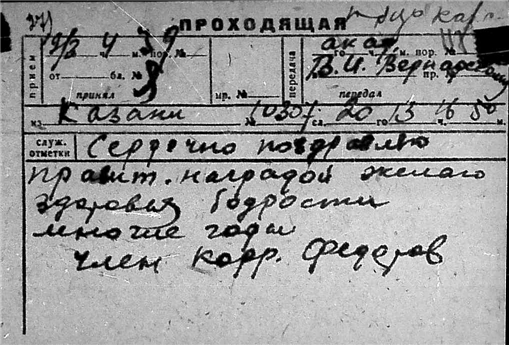 ПРОХОДЯЩАЯ
ч. м. пор. №
го ч. м. пор. №
акад.
В. И. Вернадскому
прием
от бл. №
принял
мр. №
передача
пр.
передал
из Казани № 10307 сл. 20 го 13 ч. 16 50 м.
служ. отметки Сердечно поздравляю
правит. наградой желаю
здоровья бодрости
многие годы
член корр. Федоров